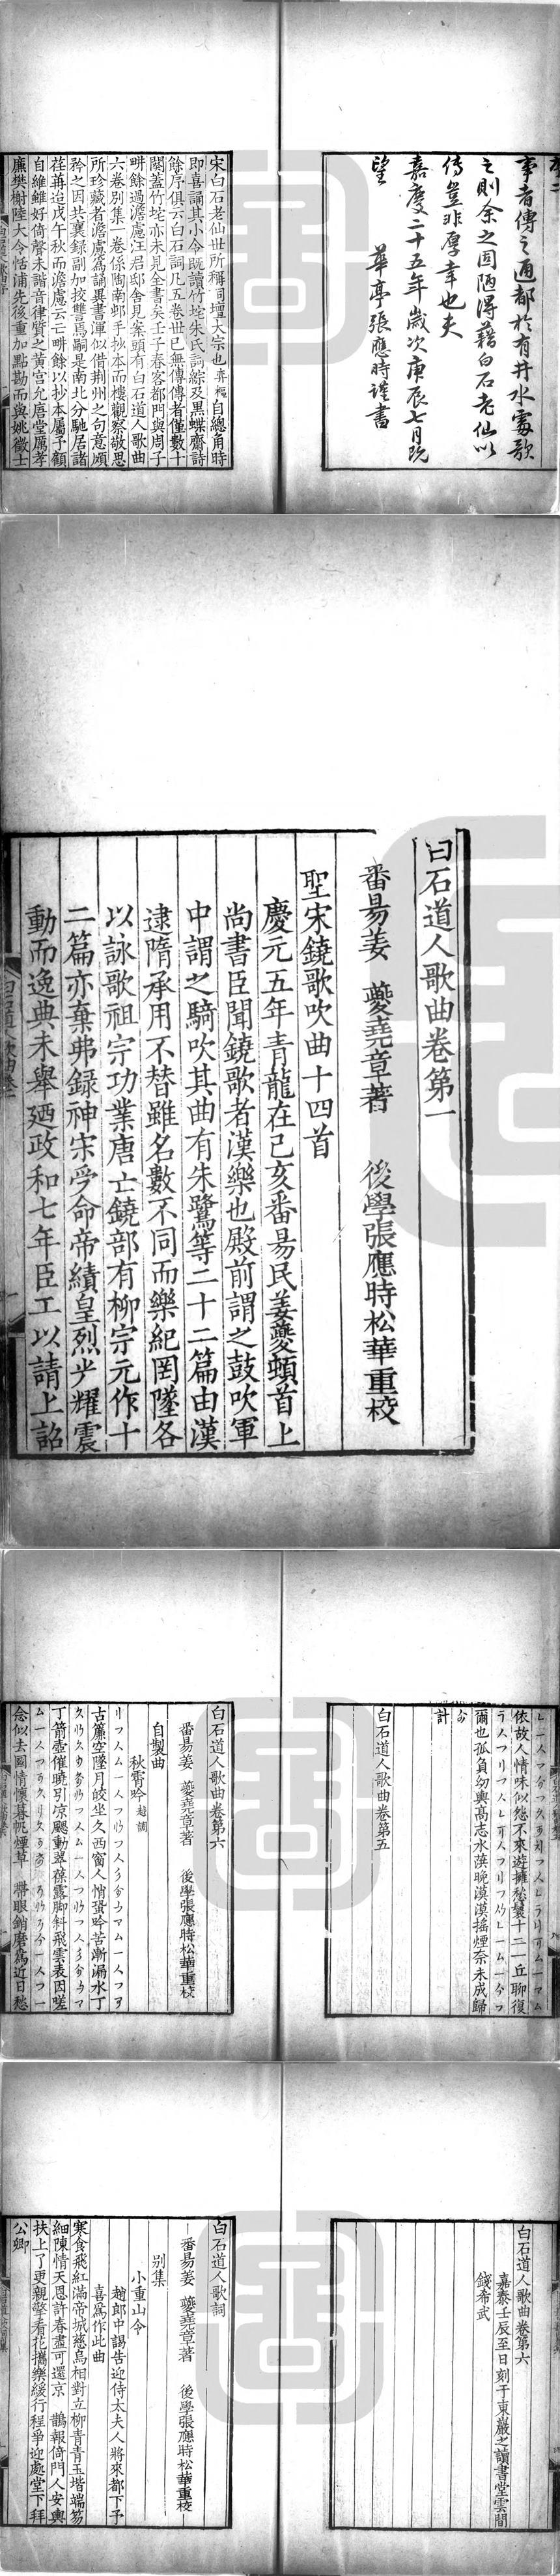 事者傳之通都於有井水處歌
之則余之固陋得藉白石老仙以
傳豈非厚幸也夫
嘉慶二十五年歲次庚辰七月既
望　華亭張應時謹書
宋白石老仙世所稱詞壇大宗也弈樞自總角時
即喜誦其小令既讀竹垞朱氏詞綜及黑蝶齋詩
餘序俱云白石詞凡五卷世已無傳傳者僅數十
闋蓋竹垞亦未見全書矣壬子春客都門與周子
畊餘過澹慮汪君邸舍見案頭有白石道人歌曲
六卷別集一卷係陶南邨手抄本而樓觀察敬思
所珍藏者澹慮篤誦異書渾似借荊州之句意頗
矜之因共襄録副加挍讐焉嗣是南北分馳居諸
荏苒迨戊午秋而澹慮云亡畊餘以抄本屬予顧
自維雖好倚聲未諳音律質之黃宫允唐堂厲孝
廉樊榭陸大令恬浦先後重加點勘而與姚徵士
白石道人歌曲卷第一
番昜姜　夔堯章著　後學張應時松華重校
聖宋鐃歌吹曲十四首
慶元五年青龍在己亥番昜民姜夔頓首上
尚書臣聞鐃歌者漢樂也殿前謂之鼓吹軍
中謂之騎吹其曲有朱鷺等二十二篇由漢
逮隋承用不替雖名數不同而樂紀罔墜各
以詠歌祖宗功業唐亡鐃部有柳宗元作十
二篇亦棄弗録神宋受命帝績皇烈光耀震
動而逸典未舉廼政和七年臣工以請上詔
依故人情味似怨不來遊擁愁鬟十二一丘聊復
爾也孤負幼輿高志水葓晚漠漠摇煙奈未成歸
計
白石道人歌曲卷第五
白石道人歌曲卷第六
番昜姜　夔堯章著　後學張應時松華重校
自製曲
秋宵吟 越調
古簾空墜月皎坐久西窗人悄蛩吟苦漸漏水丁
丁箭壺催曉引凉颸動翠葆露脚斜飛雲表因嗟
念似去國情懷暮帆煙草　帶眼銷磨爲近日愁
白石道人歌曲卷第六
嘉泰壬辰至日刻于東巖之讀書堂雲間
錢希武
白石道人歌詞
番昜姜　夔堯章著　後學張應時松華重校
別集
小重山令
趙郎中謁告迎侍太夫人將來都下予
喜爲作此曲
寒食飛紅滿帝城慈烏相對立柳青青玉堦端笏
細陳情天恩許春盡可還京　鵲報倚門人安輿
扶上了更親擎看花攜樂緩行程爭迎處堂下拜
公卿